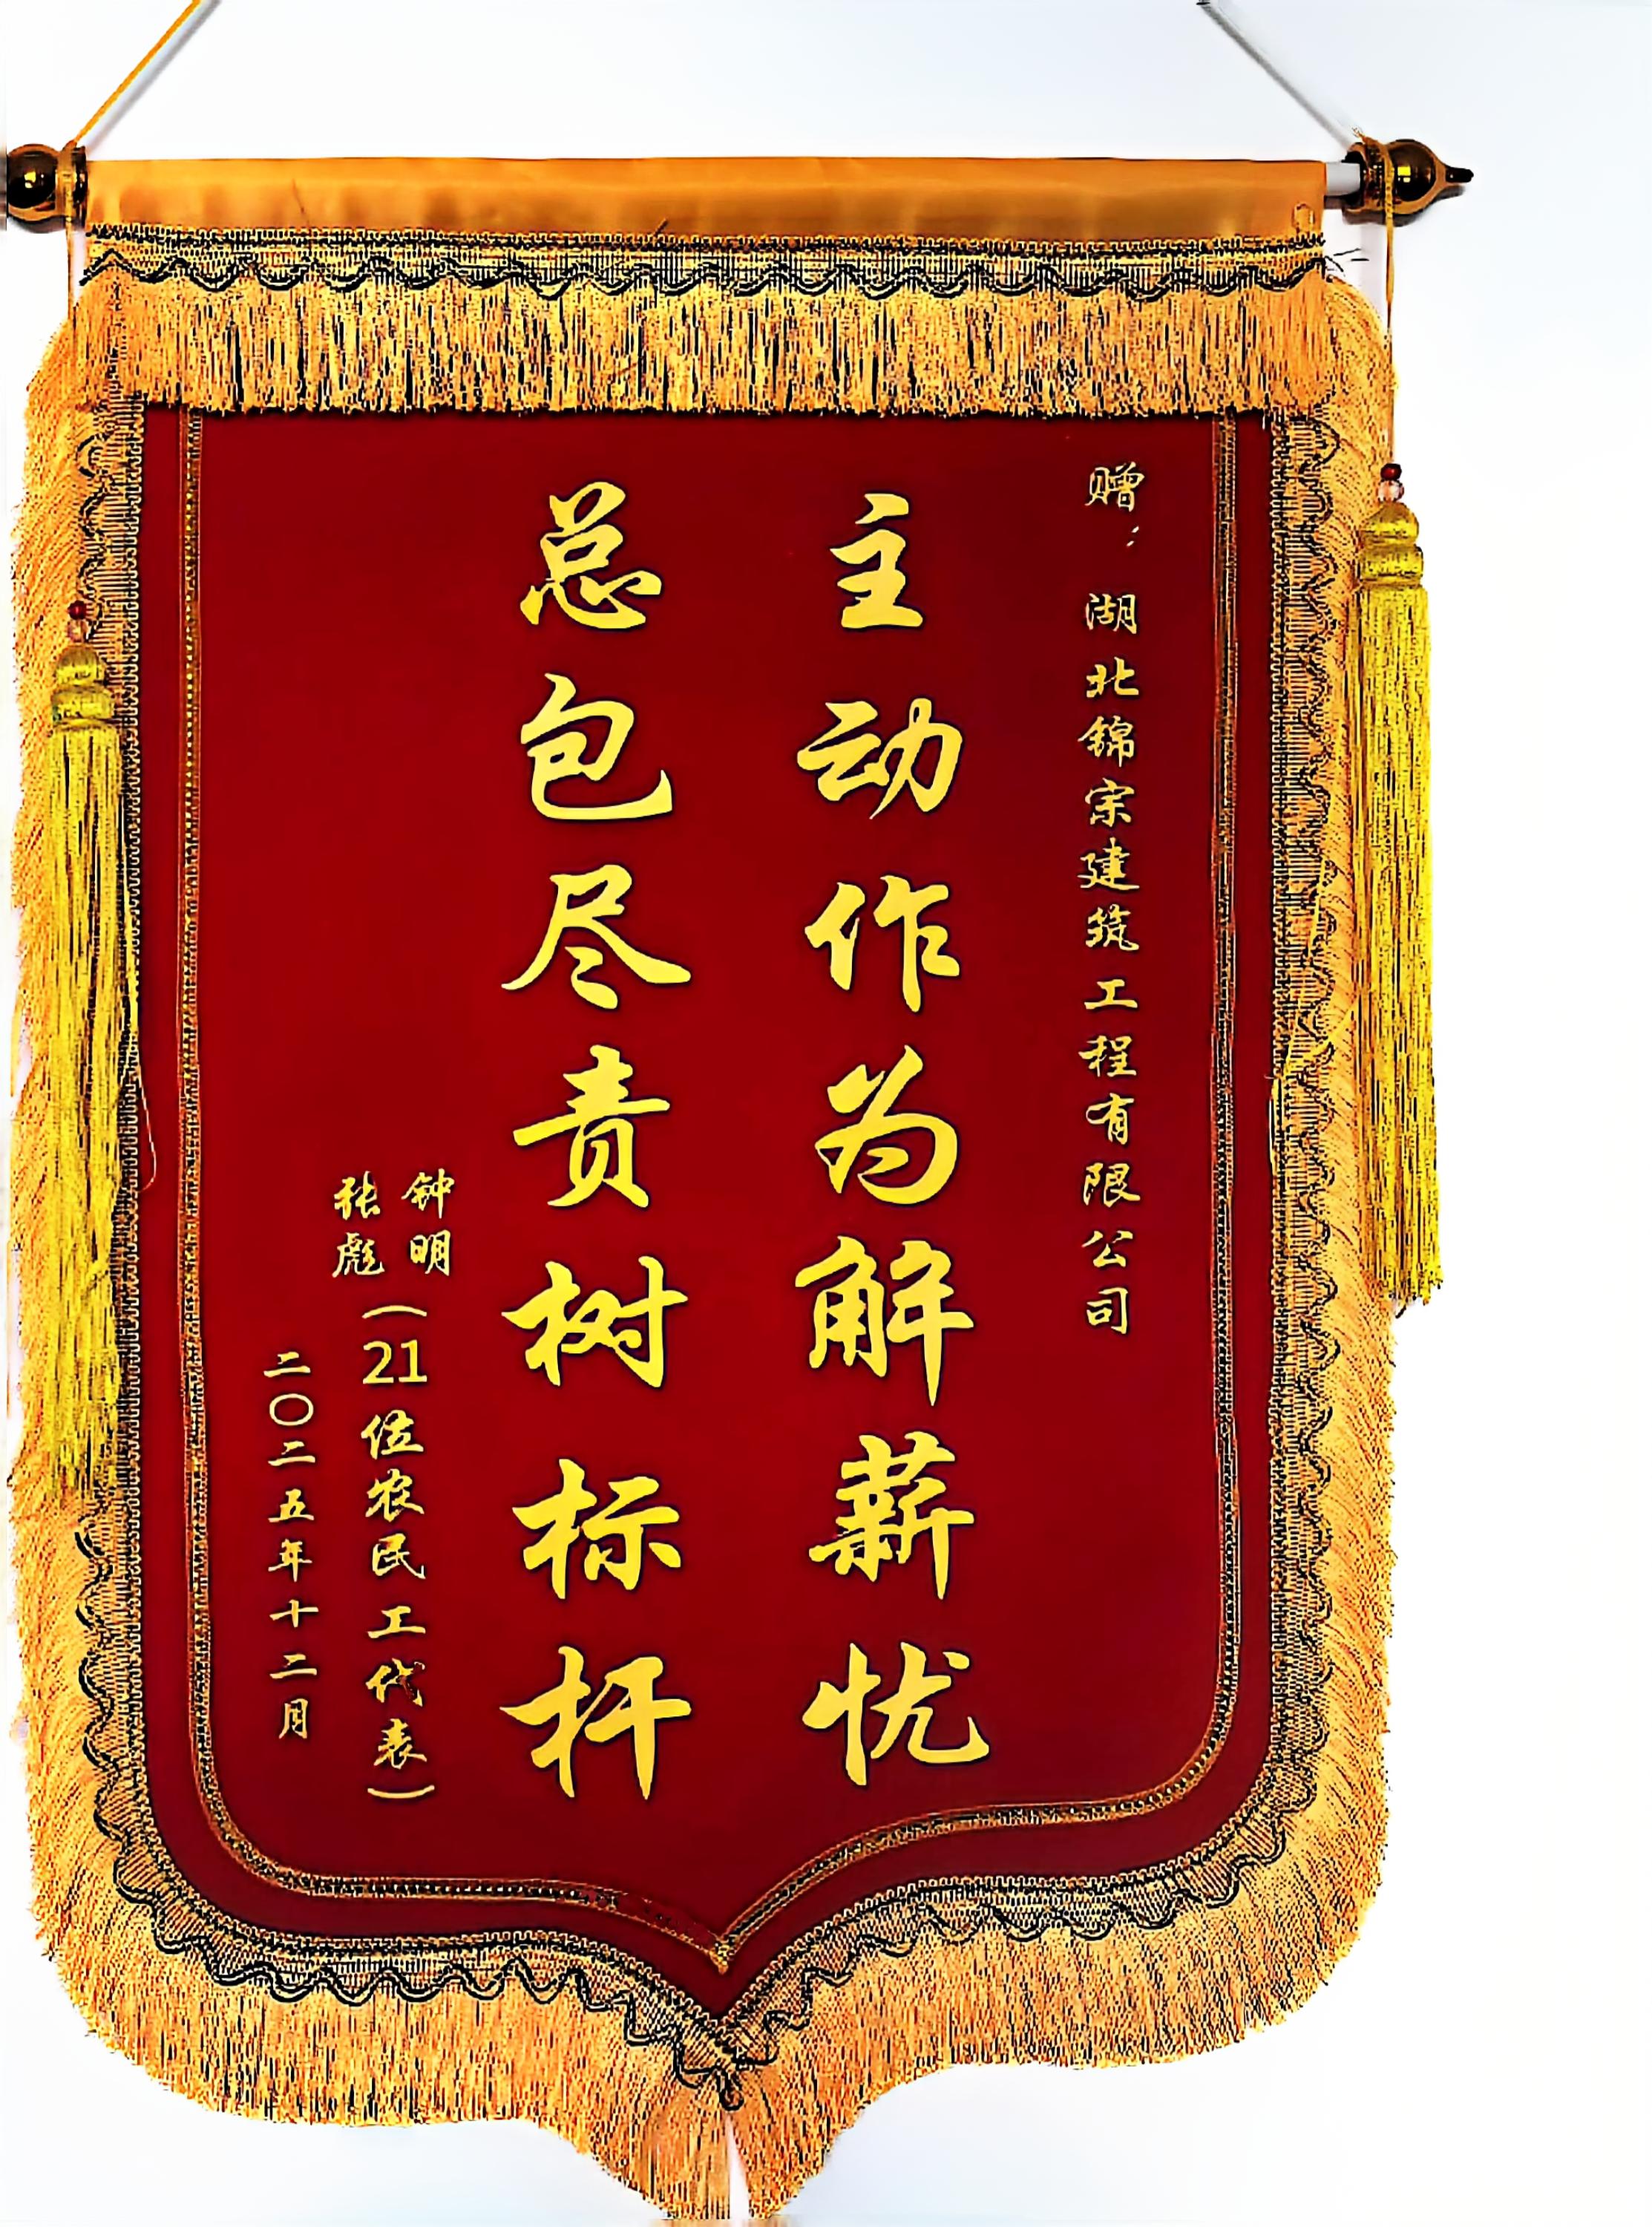 赠：湖北锦宗建筑工程有限公司
主动作为解薪忧
总包尽责树标杆
钟明
张彪
（21位农民工代表）
二〇二五年十二月